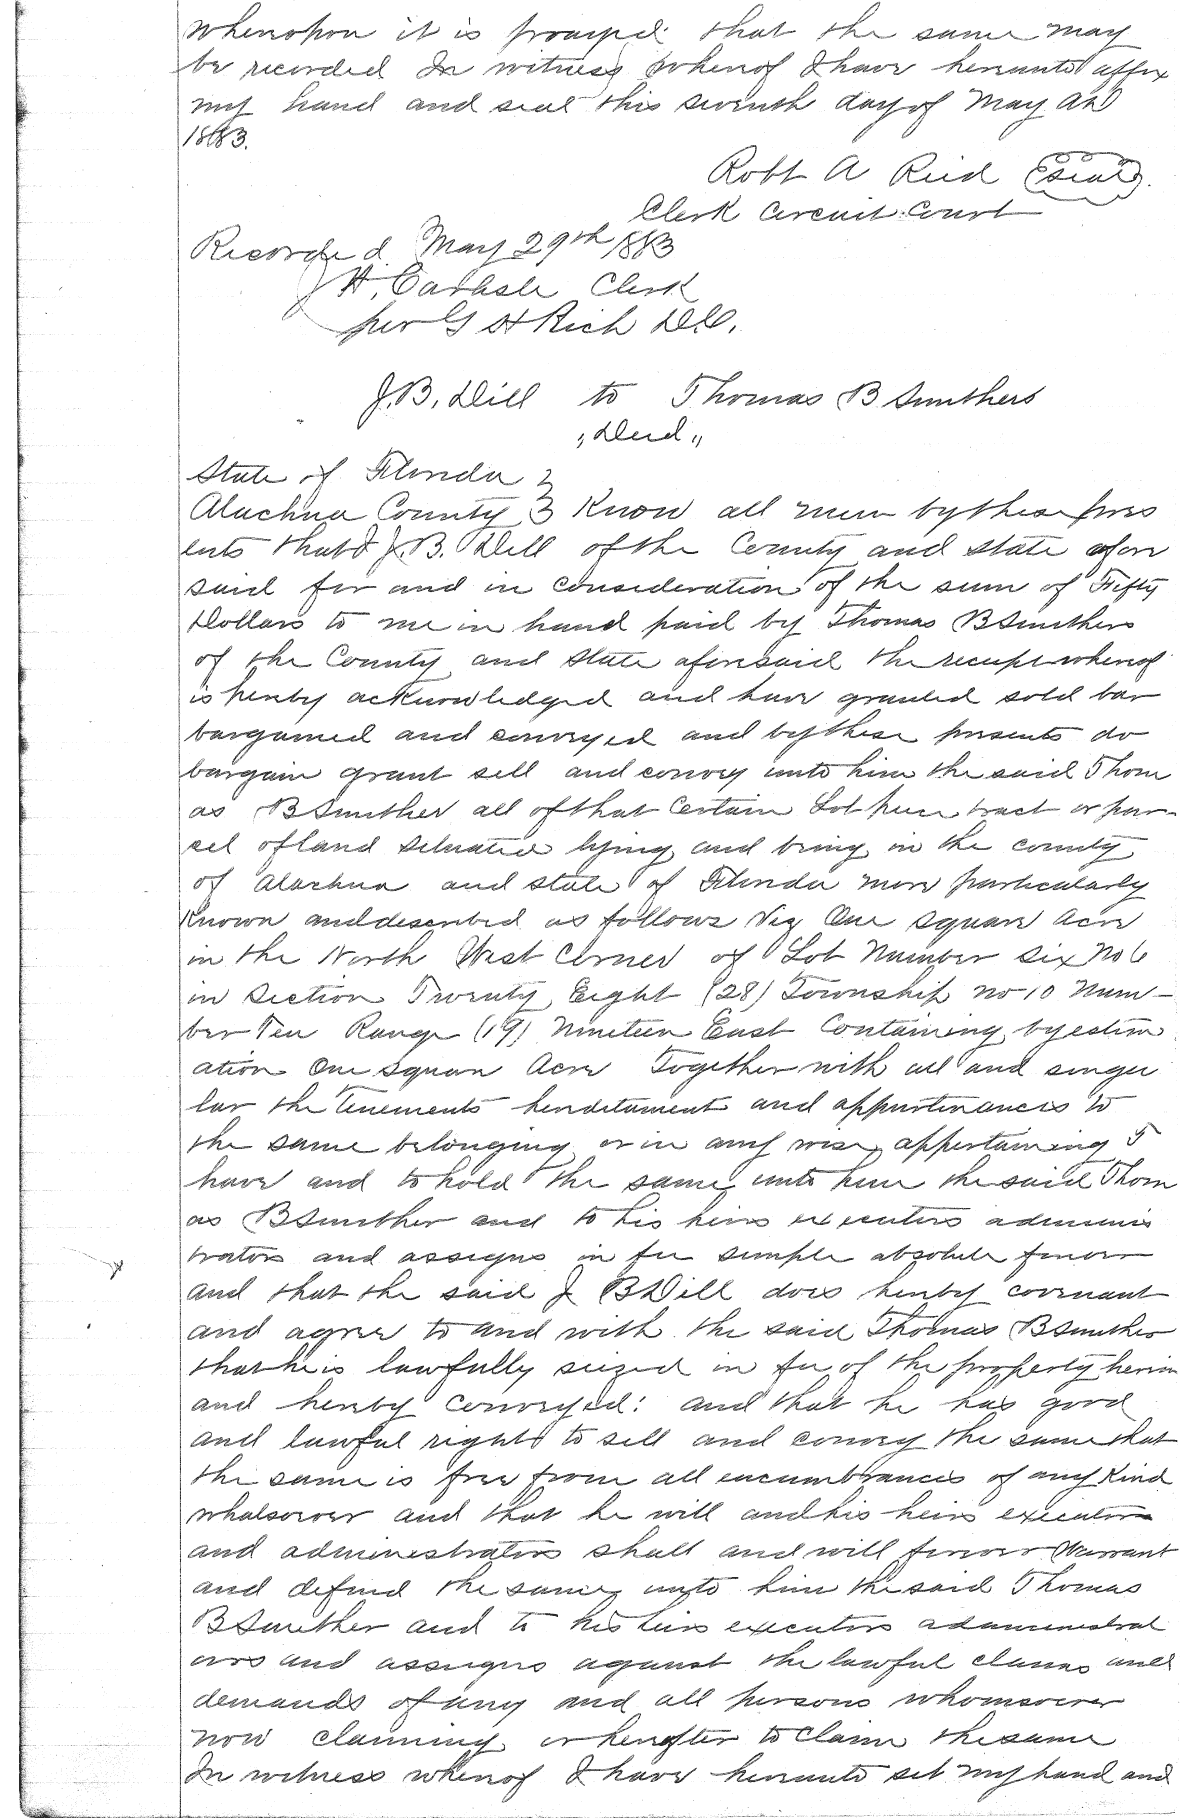 Whereupon it is prayed that the same may
be recorded In witness whereof I have hereunto affix
my hand and seal this seventh day of May AD
1883.
Robt A Reid (Seal).
Clerk Circuit Court
Recorded May 29th 1883
J H. Carlisle Clerk
per G H Rich D.C.
J. B. Dill to Thomas B Smithers
"Deed"
State of Florida }
Alachua County } Know all men by these pres
ents that I J. B. Dill of the County and State afore
said for and in consideration of the sum of Fifty
Dollars to me in hand paid by Thomas B Smithers
of the County and State aforesaid the receipt whereof
is hereby acknowledged and have granted sold bar
bargained and conveyed and by these presents do
bargain grant sell and convey unto him the said Thom
as B Smither all of that Certain Lot piece tract or par-
sel of land situated lying and being in the county
of Alachua and state of Florida more particularly
Known and described as follows Viz One square Acre
in the North West Corner of Lot Number six No 6
in Section Twenty Eight (28) Township no 10 Num-
ber Ten Range (19) Nineteen East Containing by estim
ation One square Acre Together with all and singu
lar the Tenements hereditament and appurtenances to
the same belonging or in any wise appertaining To
have and to hold the same unto him the said Thom
as B Smither and to his heirs executors adminis
trators and assigns in fee simple absolute forever
and that the said J B Dill does hereby covenant
and agree to and with the said Thomas B Smither
that he is lawfully seized in fee of the property herein
and hereby conveyed: and that he has good
and lawful rights to sell and convey the same that
the same is free from all encumbrances of any Kind
whatsoever and that he will and his heirs executors
and administrators shall and will forever Warrant
and defend the same unto him the said Thomas
B Smither and to his heirs executors administrat
ors and assigns against the lawful claims and
demands of any and all persons whomsoever
now claiming or hereafter to claim the same
In witness whereof I have hereunto set my hand and